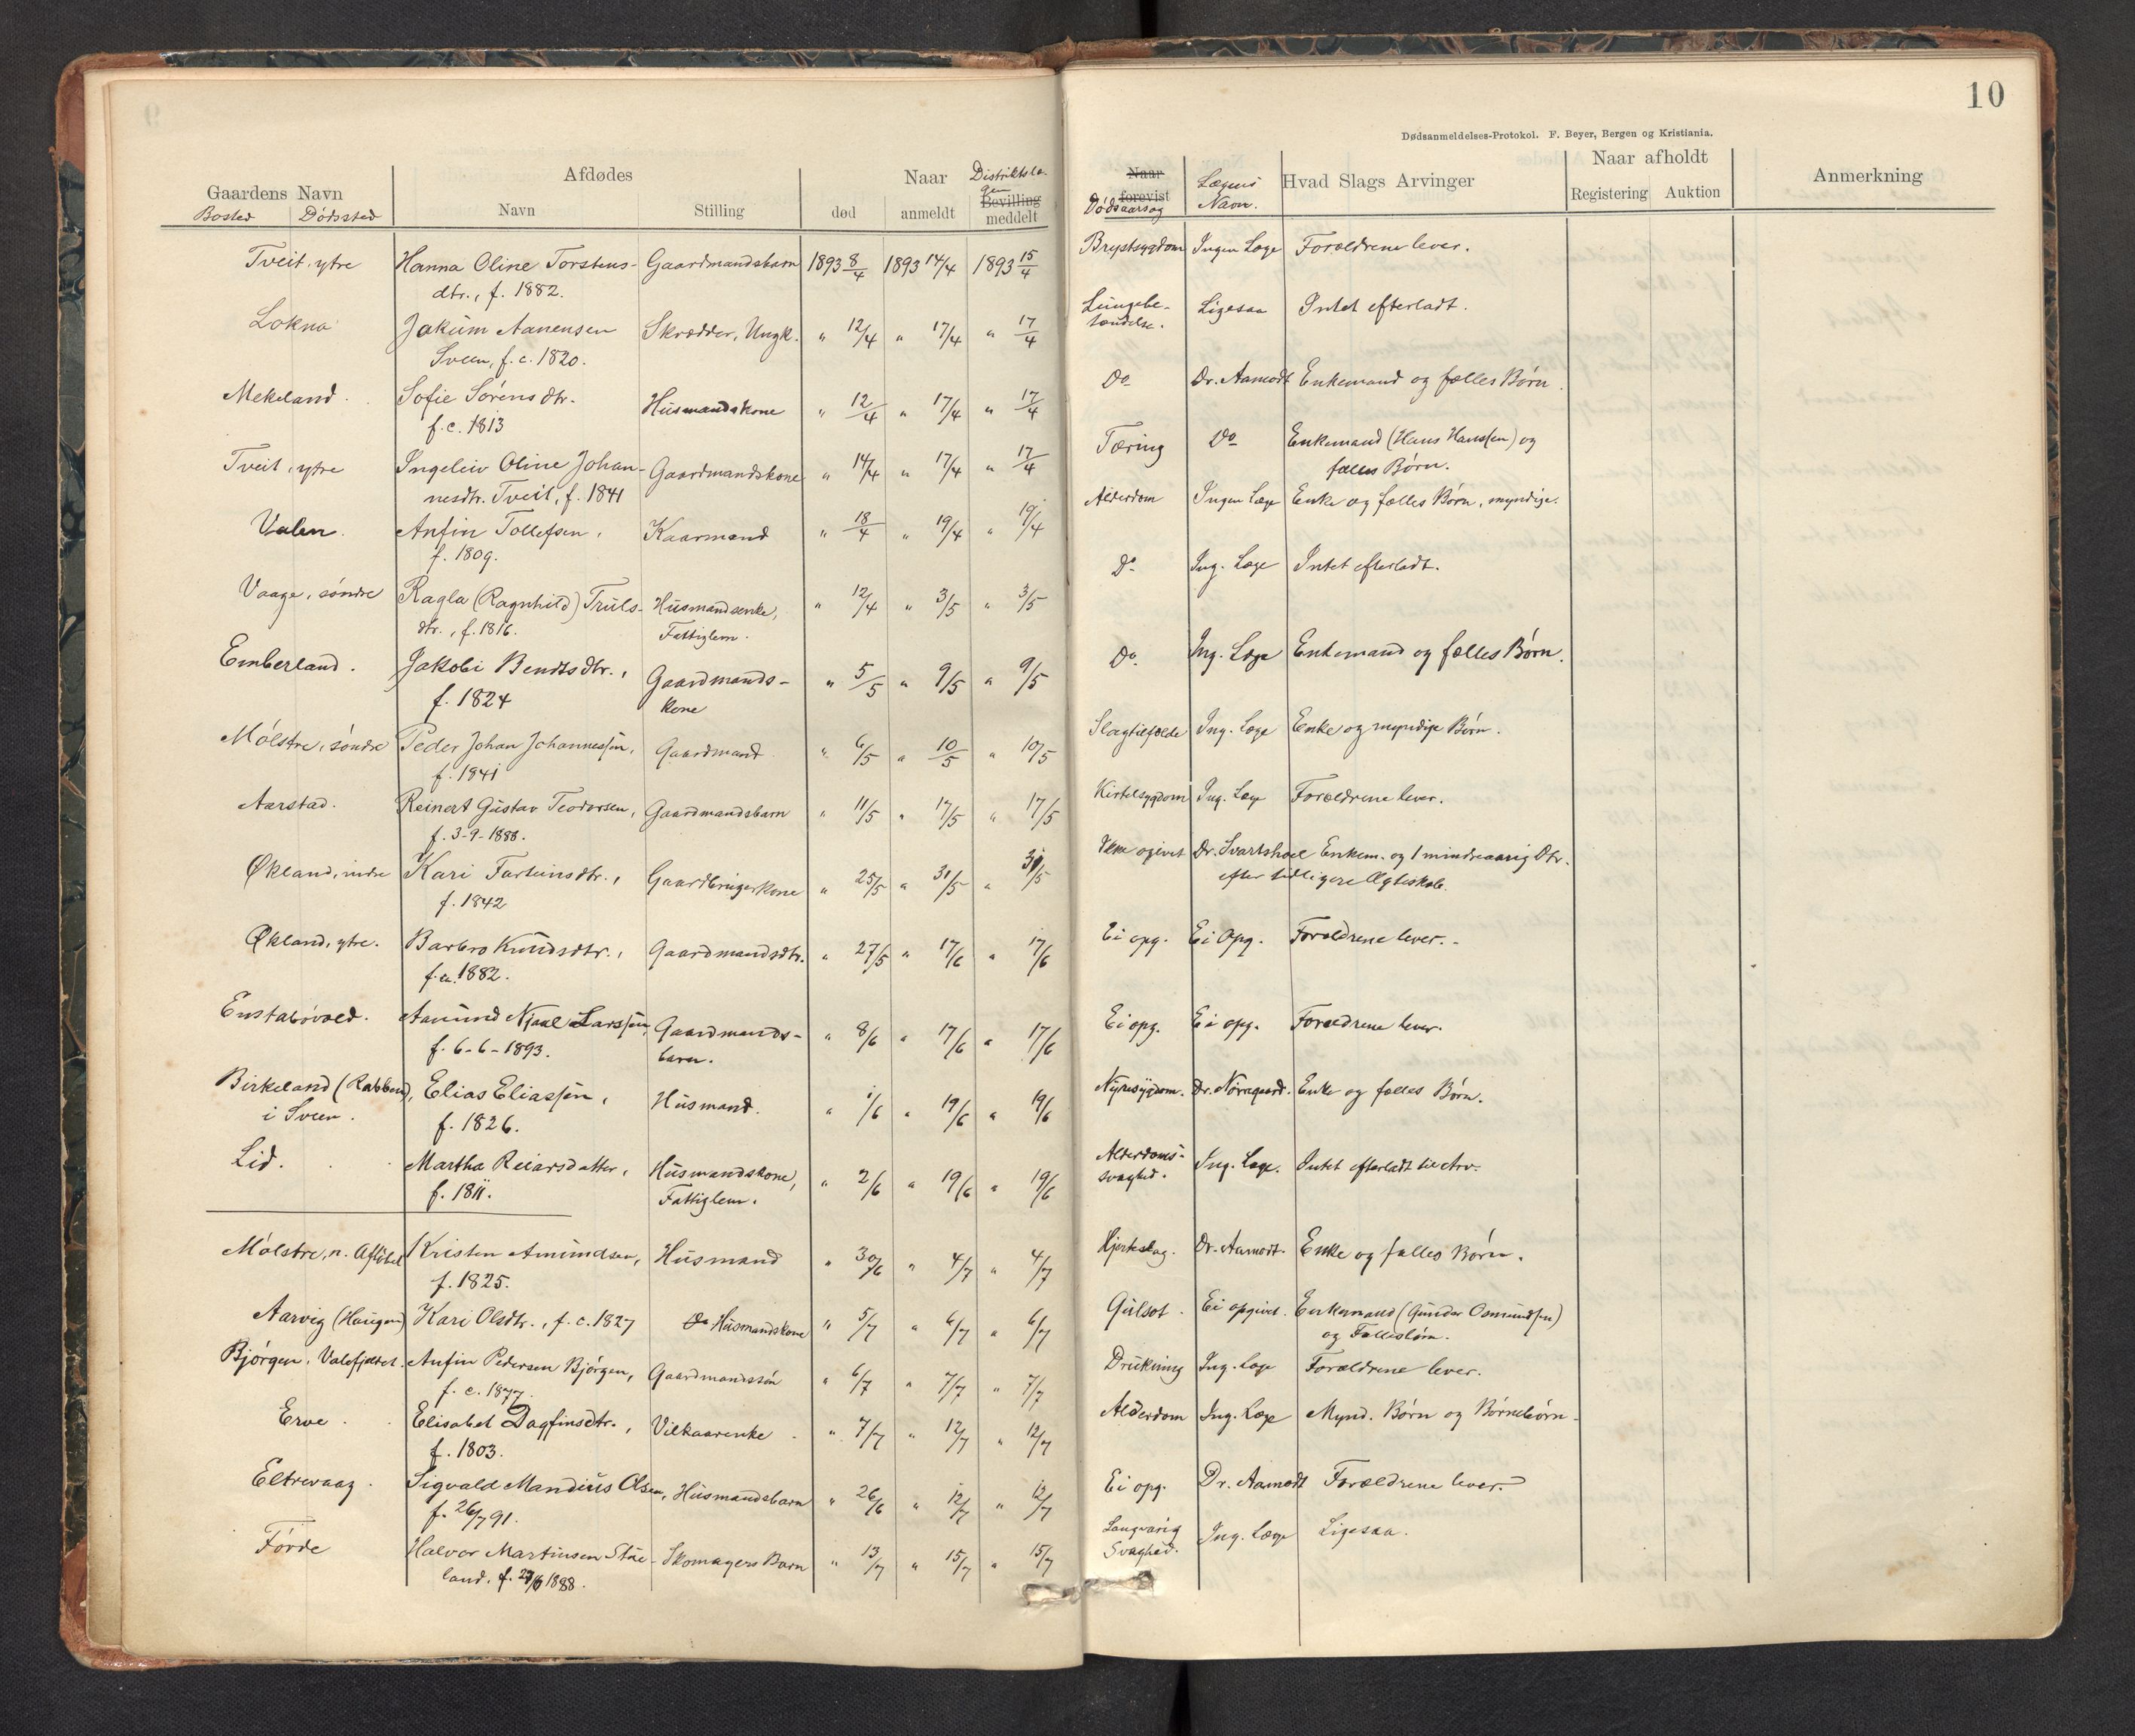 10
Dødsanmeldelses-Protokol. F. Beyer, Bergen og Kristiania.
Gaardens Navn Afdødes Naar Distriktslæ-
gen
Bosted Dødssted Navn Stilling død anmeldt Bevilling meddelt
Naar forevist Dødsaarsag Lægens Navn. Hvad Slags Arvinger Naar afholdt Anmerkning
Registering Auktion
Tveit, ytre Hanna Oline Torstens- Gaardmandsbarn 1893 8/4 1893 14/4 1893 15/4 Brystsygdom Ingen Læge Forældrene lever.
dtr., f. 1882.
Lokna Jakum Aanensen Skrædder, Ungk. " 12/4 " 17/4 " 17/4 Lungebe- Ligesaa Intet efterladt.
Sveen, f. c. 1820. tændelse.
Mekeland. Sofie Sørensdtr. Husmandskone " 12/4 " 17/4 " 17/4 Do Dr. Aamodt Enkemand og fælles Børn.
f. c. 1813
Tveit, ytre Ingeleiv Oline Johan- Gaardmandskone " 14/4 " 17/4 " 17/4 Tæring Do Enkemand (Hans Hanssen) og
nesdtr. Tveit, f. 1841 fælles Børn.
Valen. Anfin Tollefsen, Kaarmand " 18/4 " 19/4 " 19/4 Alderdom Ingen Læge Enke og fælles Børn, myndige.
f. 1809.
Vaage, søndre Ragla (Ragnhild) Truls- Husmandsenke, " 12/4 " 3/5 " 3/5 Do Ing. Læge Intet efterladt.
dtr., f. 1816. Fattiglem.
Emberland. Jakobi Bendtsdtr., Gaardmands- " 5/5 " 9/5 " 9/5 Do Ing. Læge Enkemand og fælles Børn.
f. 1824 kone
Mølstre, søndre Peder Johan Johannessen, Gaardmand " 6/5 " 10/5 " 10/5 Slagtilfælde Ing. Læge Enke og myndige Børn.
f. 1841
Aarstad. Reinert Gustav Teodorsen, Gaardmandsbarn " 11/5 " 17/5 " 17/5 Kirtelsygdom Ing. Læge Forældrene lever.
f. 3-9-1888.
Økland, indre Kari Farteinsdtr., Gaardbrugerkone " 25/5 " 31/5 " 31/5 Ikke opgivet Dr. Svartshoel Enkem. og 1 mindreaarig Dtr.
f. 1842 efter tidligere Ægteskab.
Økland, ytre. Barbro Knudsdtr., Gaardmandsdtr. " 27/5 " 17/6 " 17/6 Ei opg. Ei Opg. Forældrene lever.
f. ca. 1882.
Enstabøvold. Aamund Njaal Larssen, Gaardmands- " 8/6 " 17/6 " 17/6 Ei opg. Ei opg. Forældrene lever.
f. 6-6-1893. barn.
Birkeland (Rabben), Elias Eliassen, Husmand. " 1/6 " 19/6 " 19/6 Nyresygdom. Dr. Nørregaard. Enke og fælles Børn.
i Sveen. f. 1826.
Lid. Martha Reiarsdatter, Husmandskone, " 2/6 " 19/6 " 19/6 Alderdoms- Ing. Læge. Intet efterladt til Arv.
f. 1811. Fattiglem. svaghed.
Mølstre, n. Kristen Amundsen, Husmand " 30/6 " 4/7 " 4/7 Hjerteslag. Dr. Aamodt. Enke og fælles Børn.
f. 1825.
Aarvig (Haugen) Kari Olsdtr., f. c. 1827 Do Husmandskone " 5/7 " 6/7 " 6/7 Gulsot. Ei opgivet. Enkemand (Gunder Osmundsen)
og Fællesbørn.
Bjørgen, Valefjældet. Anfin Pedersen Bjørgen, Gaardmandssøn " 6/7 " 7/7 " 7/7 Drukning Ing. Læge Forældrene lever.
f. c. 1877.
Erve Elisabet Dagfinsdtr., Vilkaarenke " 7/7 " 12/7 " 12/7 Alderdom Ing. Læge Mynd. Børn og Børnebørn.
f. 1803.
Eltrevaag. Sigvald Mandius Olsen, Husmandsbarn " 26/6 " 12/7 " 12/7 Ei opg. Dr. Aamodt Forældrene lever.
f. 26/7 91.
Førde Halvor Martinsen Stue- Skomagers Barn " 13/7 " 15/7 " 15/7 Langvarig Ing. Læge Ligesaa.
land, f. 1888. Svaghed.